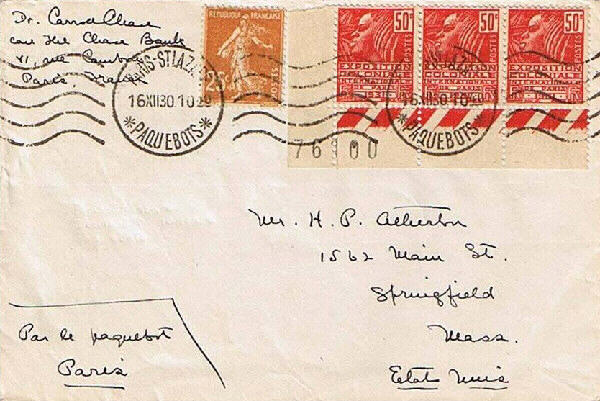 Dr. Carroll Chase
care The Chase Bank
41, rue Cambon
Paris, France
REPUBLIQUE FRANÇAISE
25c
POSTES
50c 50c 50c
POSTES POSTES POSTES
EXPOSITION EXPOSITION EXPOSITION
COLONIALE COLONIALE COLONIALE
INTERNATIONALE INTERNATIONALE INTERNATIONALE
PARIS-ST LAZARE
16 XII 30 10
*PAQUEBOTS*
PARIS-ST LAZARE
16 XII 30 10
*PAQUEBOTS*
76100
Mr. H. P. Atherton
1562 Main St.
Springfield
Mass.
Etat Unis
Par le paquebot
Paris